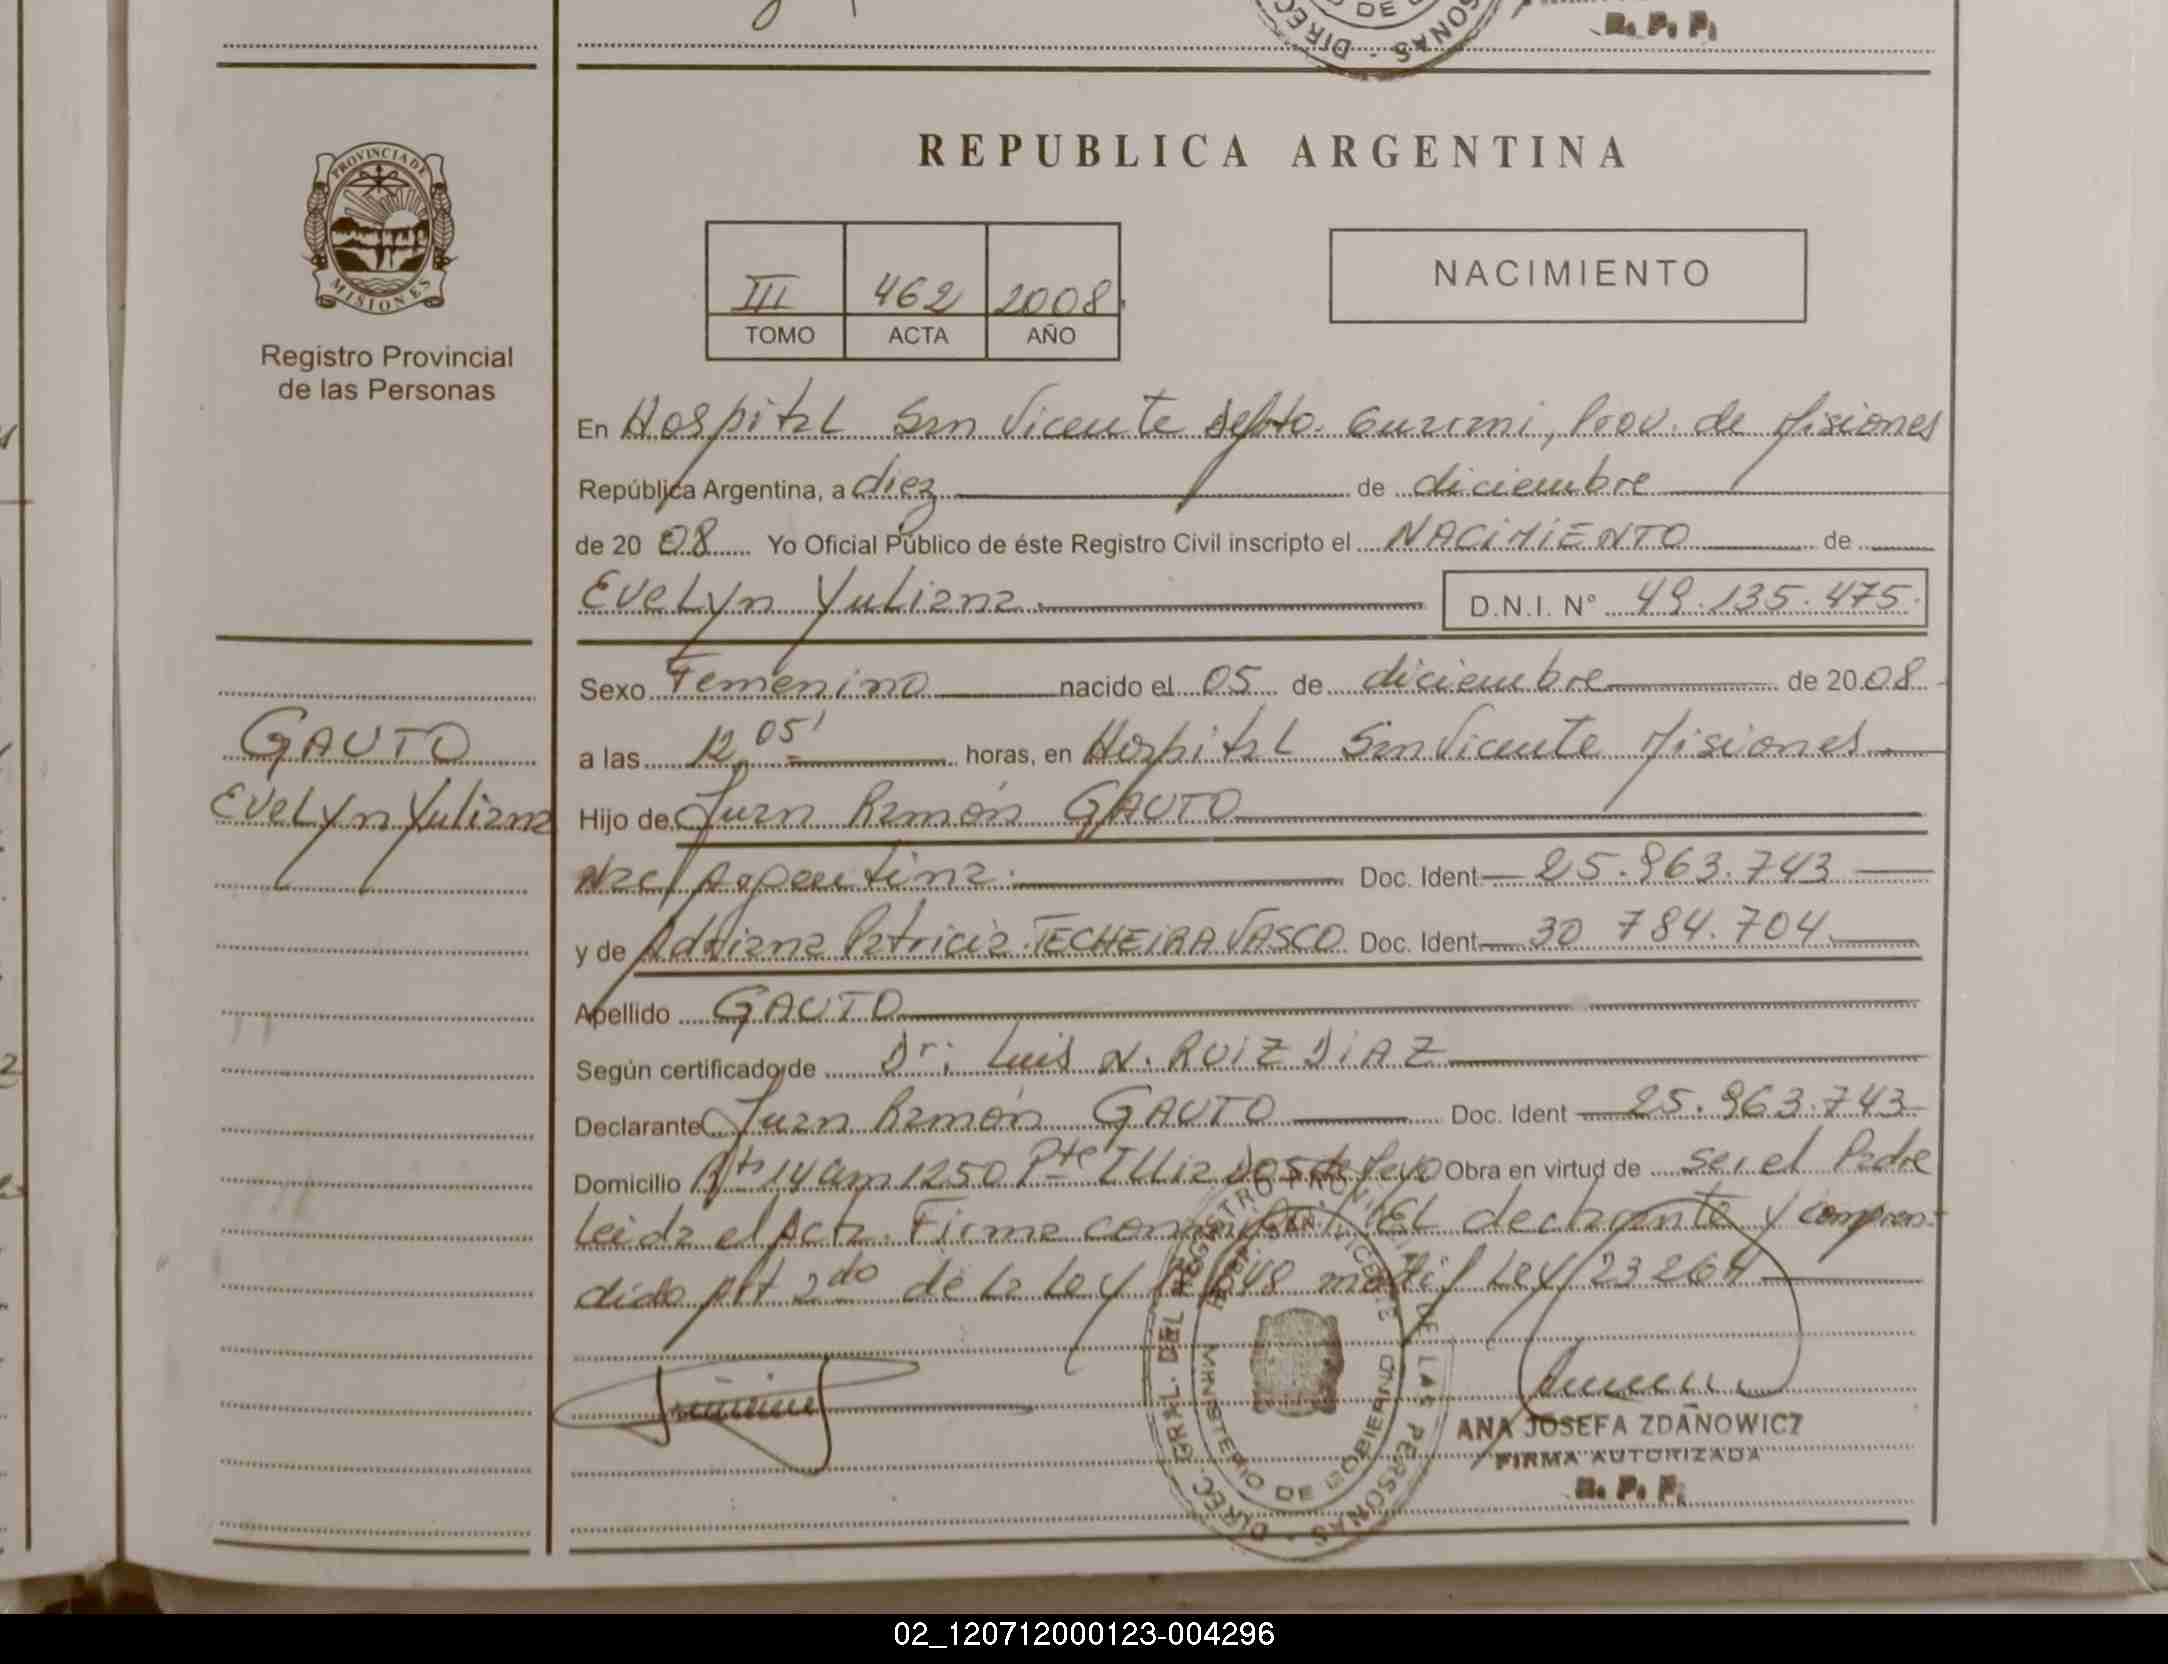 R. P. P.
REPUBLICA ARGENTINA
PROVINCIA DE MISIONES
Registro Provincial
de las Personas
III 462 2008
TOMO ACTA AÑO
NACIMIENTO
En Hospital San Vicente depto. Guarani, Prov. de Misiones
República Argentina, a diez de diciembre
de 20 08 Yo Oficial Público de éste Registro Civil inscripto el NACIMIENTO de
Evelyn Yuliana D.N.I. N° 49.135.475.
Sexo Femenino nacido el 05 de diciembre de 20 08
GAUTO
Evelyn Yuliana
a las 12 05' horas, en Hospital San Vicente Misiones
Hijo de Juan Ramón GAUTO
Nac Argentina. Doc. Ident 25.963.743
y de Adriana Patricia TECHEIRA VASCO Doc. Ident 30 784.704
Apellido GAUTO
Según certificado de Dr: Luis N. RUIZ DIAZ
Declarante Juan Ramón GAUTO Doc. Ident 25.963.743
Domicilio Rta 14 Km 1250 Pte Illia Dos de Mayo Obra en virtud de ser el Padre
Leida el Acta. Firma El declarante y compren-
dido Art 2do de la Ley modif Ley 23264
DIREC. GRAL. DEL REGISTRO PROVINCIAL DE LAS PERSONAS
HOSP. SAN VICENTE
MINISTERIO DE GOBIERNO
ANA JOSEFA ZDANOWICZ
FIRMA AUTORIZADA
R. P. P.
02_120712000123-004296